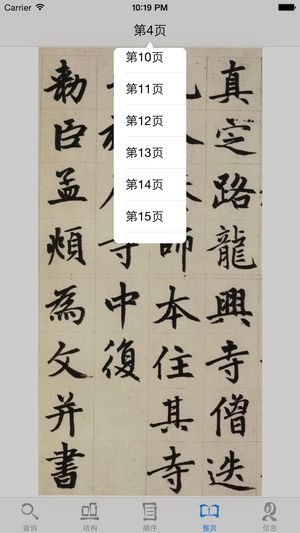 Carrier 10:19 PM
第4页
第10页
第11页
第12页
第13页
第14页
第15页
真定路龍興寺僧迭
師本住其寺
寺中復
勅臣孟頫為文并書
查询
结构
顺序
整页
信息